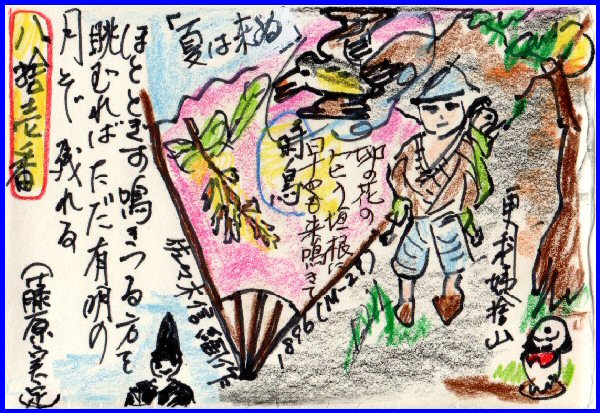 「夏は来ぬ」
八拾壱番
ほととぎす鳴きつる方を
眺むればただ有明の
月ぞ残れる
(藤原実定
時鳥
卯の花の
にほう垣根に
早も来鳴きて
佐々木信綱
1896(M-29)
姨捨山